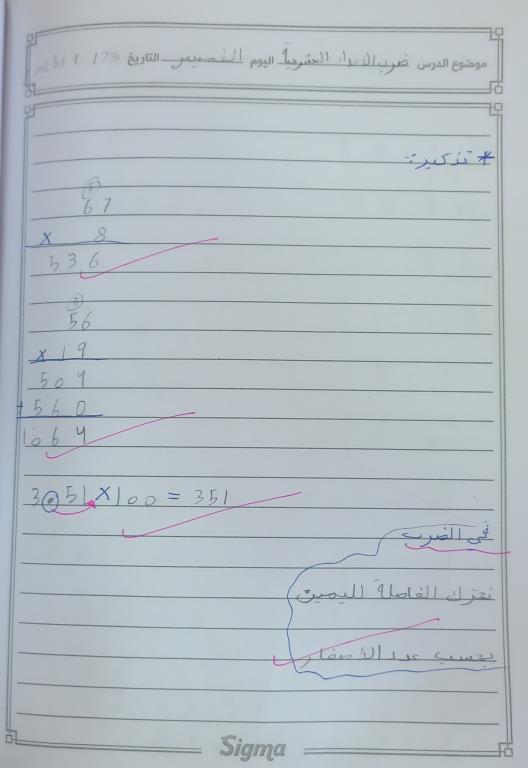 موضوع الدرس ضرب الاعداد العشرية اليوم الخميس التاريخ
* تذكير:
67
× 8
536
56
× 19
504
+ 560
1064
3.51 × 100 = 351
في الضرب
نحرك الفاصلة لليمين
بحسب عدد الأصفار
Sigma